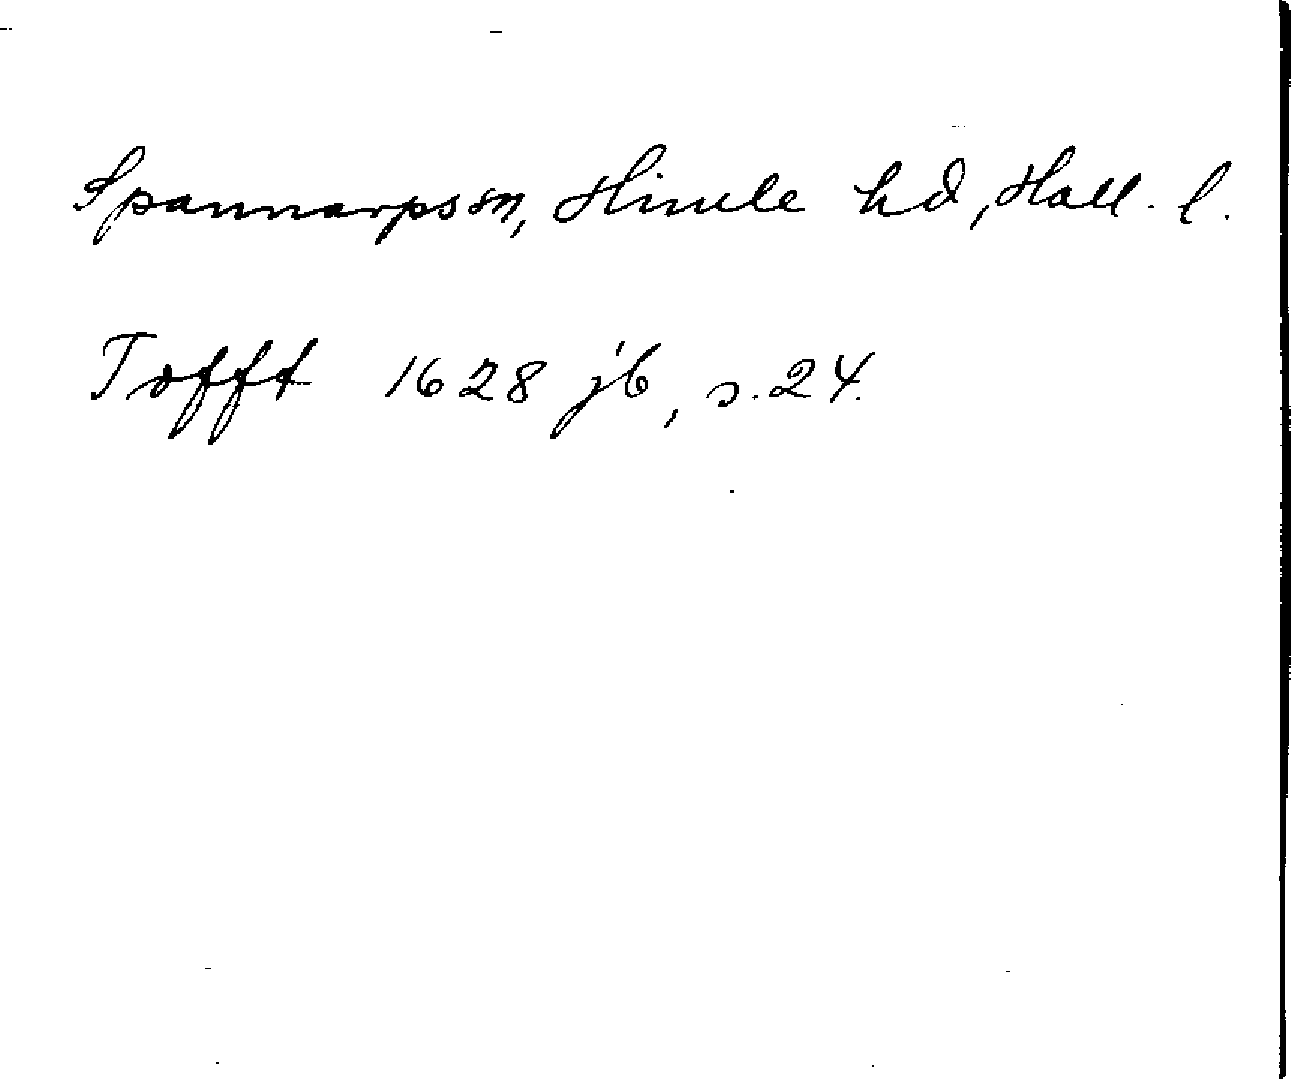 Spannarps sn, Himle hd, Hall. l.
Tofft 1628 jb, s. 24.